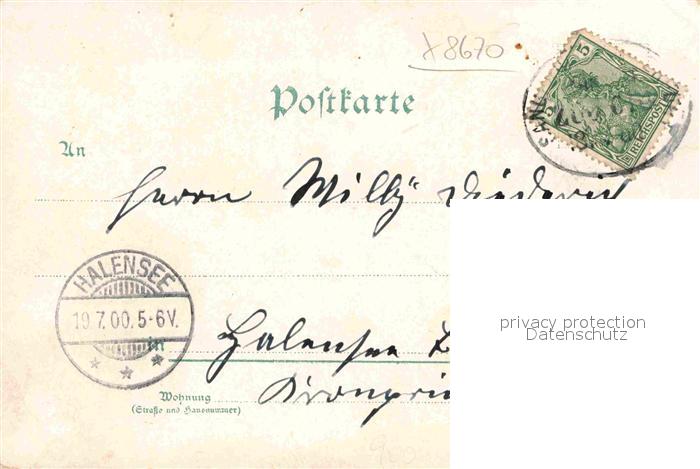 x8670
5
REICHSPOST
Postkarte
An
Herrn Willy Diederich
HALENSEE
19.7.00.5-6V.
privacy protection
Datenschutz
in Halensee
Wohnung
(Straße und Hausnummer)
Kronprin